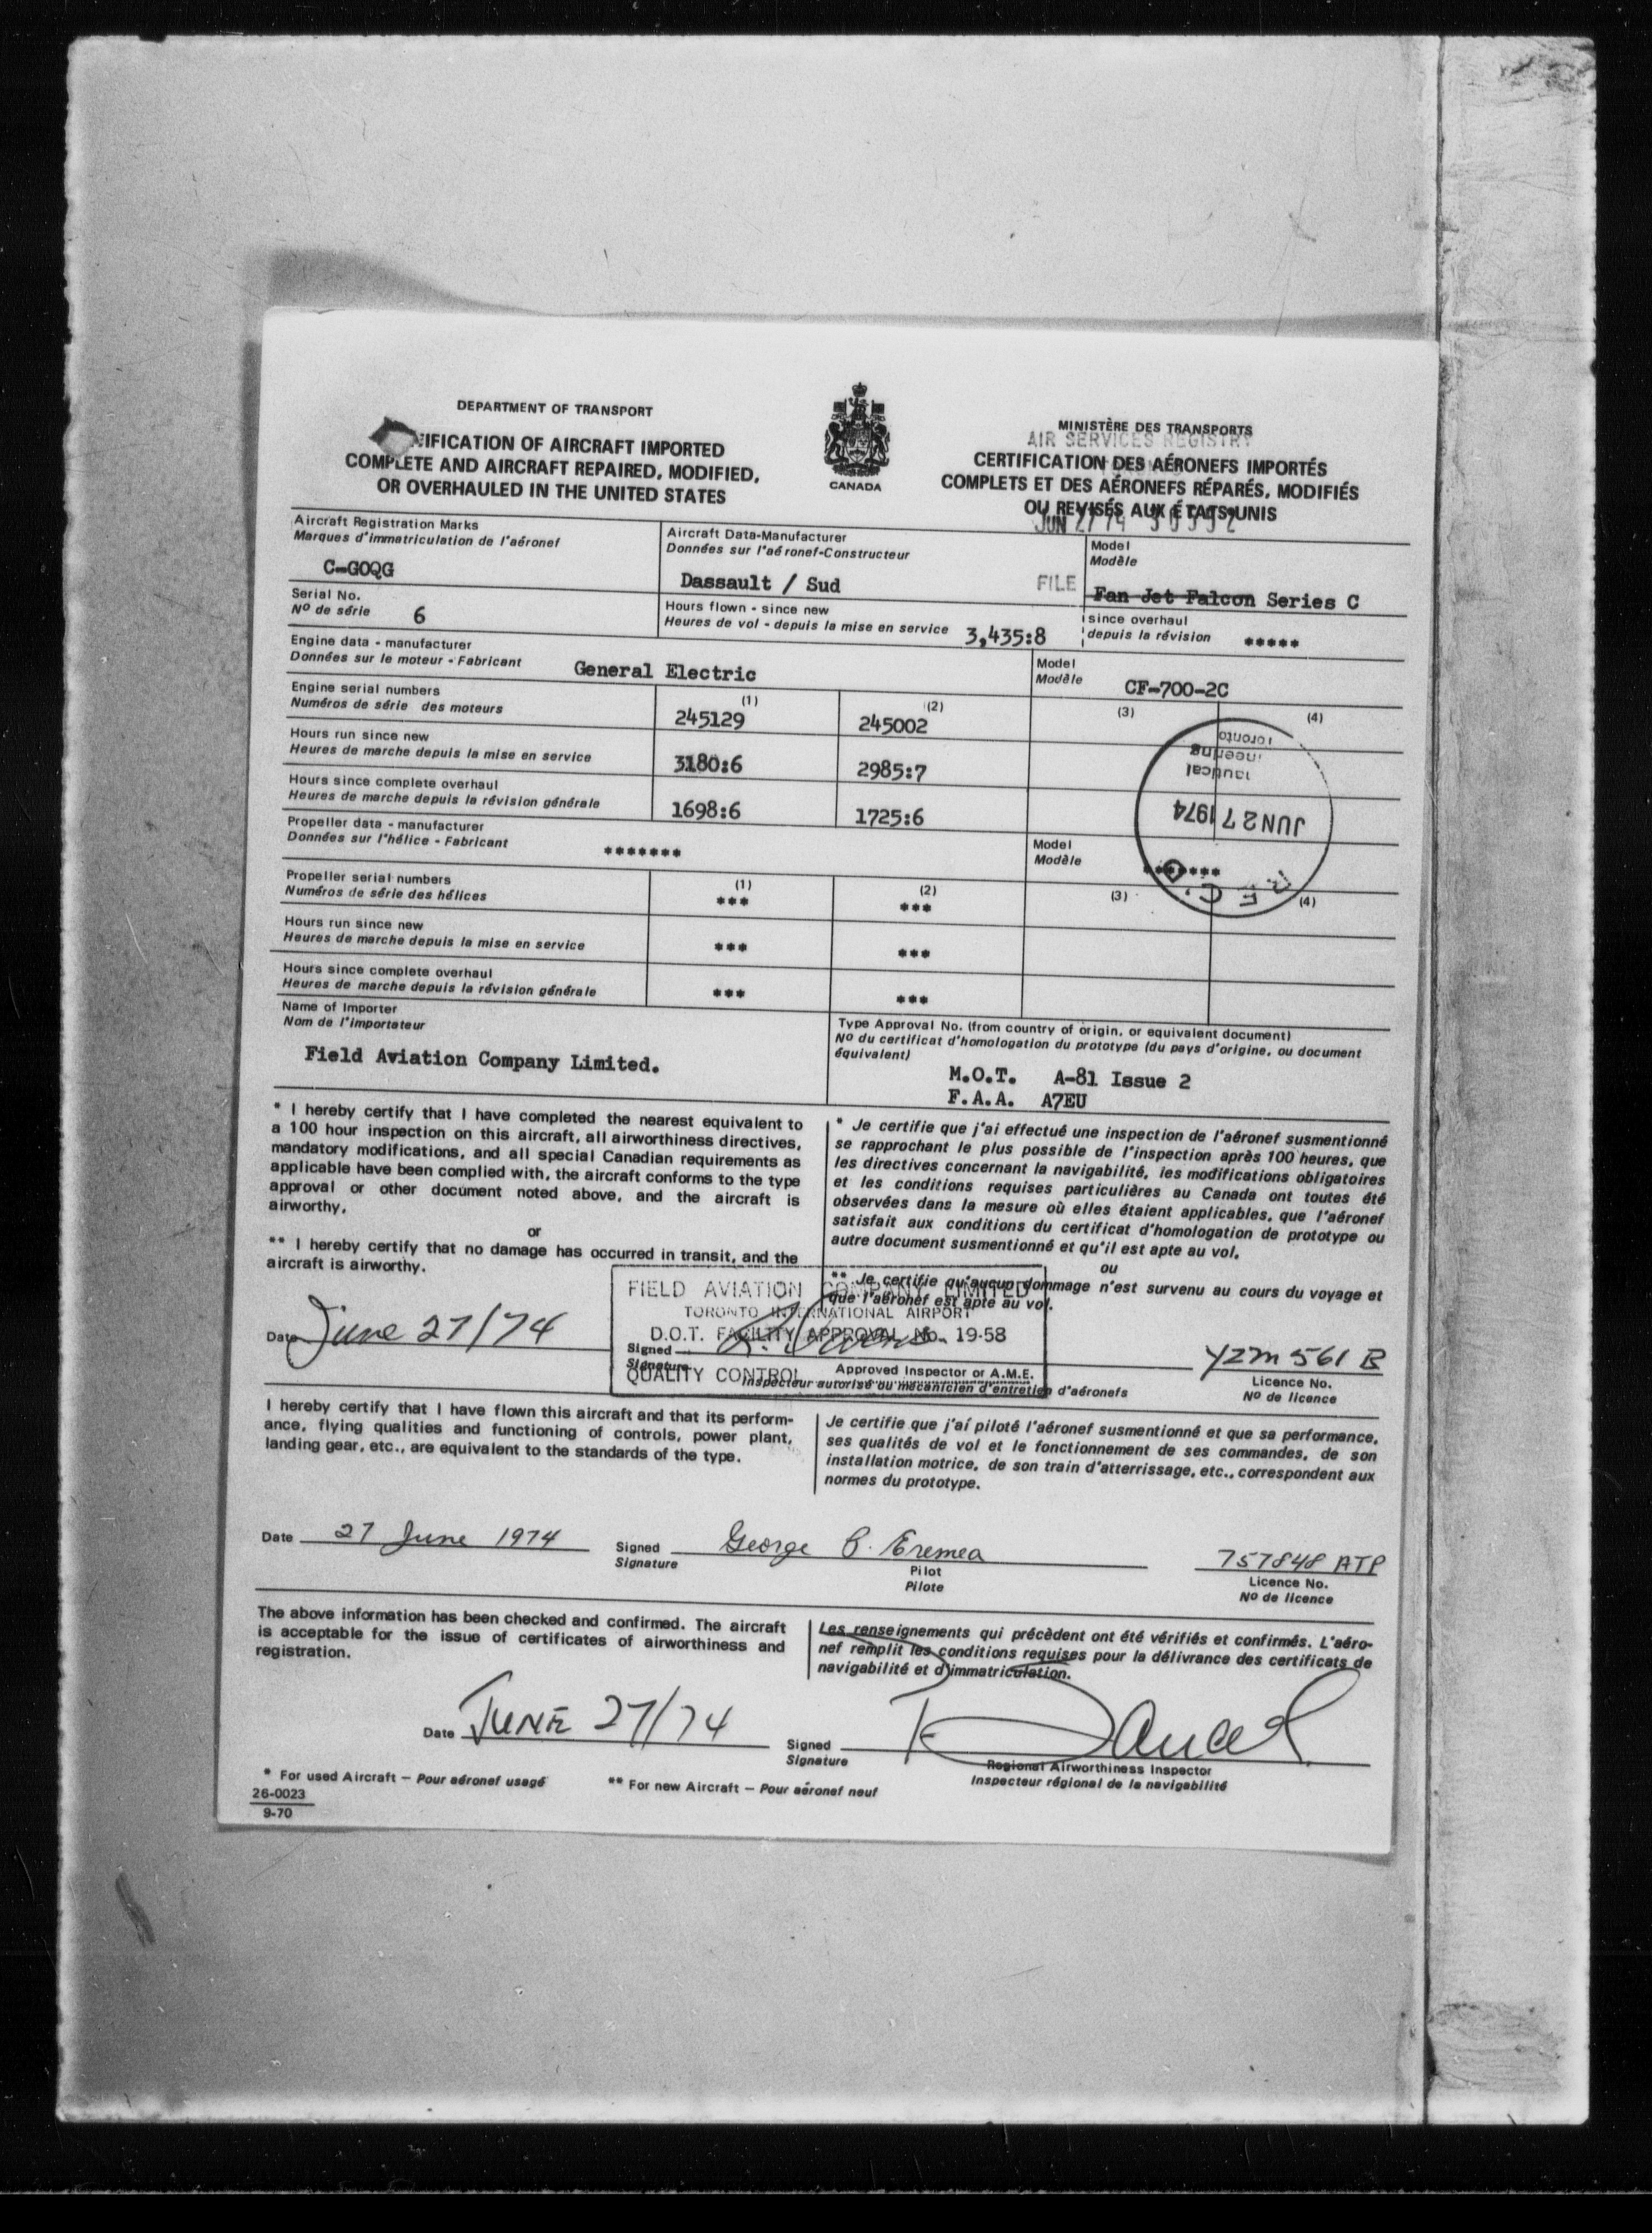 DEPARTMENT OF TRANSPORT
IFICATION OF AIRCRAFT IMPORTED
COMPLETE AND AIRCRAFT REPAIRED, MODIFIED,
OR OVERHAULED IN THE UNITED STATES
CANADA
MINISTÈRE DES TRANSPORTS
AIR SERVICES REGISTRY
CERTIFICATION DES AÉRONEFS IMPORTÉS
COMPLETS ET DES AÉRONEFS RÉPARÉS, MODIFIÉS
OU REVISÉS AUX ÉTATS-UNIS
JUN 27 74
Aircraft Registration Marks
Marques d'immatriculation de l'aéronef
C-GOQG
Aircraft Data-Manufacturer
Données sur l'aéronef-Constructeur
Dassault / Sud
FILE
Model
Modèle
Fan Jet Falcon Series C
Serial No.
Nº de série 6
Hours flown - since new
Heures de vol - depuis la mise en service 3,435:8
since overhaul
depuis la révision *****
Engine data - manufacturer
Données sur le moteur - Fabricant General Electric
Model
Modèle CF-700-2C
Engine serial numbers
Numéros de série des moteurs
(1) 245129
(2) 245002
(3)
(4)
Hours run since new
Heures de marche depuis la mise en service
3180:6
2985:7
Hours since complete overhaul
Heures de marche depuis la révision générale
1698:6
1725:6
Toronto
JUN 27 1974
REC'D
Propeller data - manufacturer
Données sur l'hélice - Fabricant *******
Model
Modèle *******
Propeller serial numbers
Numéros de série des hélices
(1) ***
(2) ***
(3)
(4)
Hours run since new
Heures de marche depuis la mise en service
***
***
Hours since complete overhaul
Heures de marche depuis la révision générale
***
***
Name of Importer
Nom de l'importateur
Field Aviation Company Limited.
Type Approval No. (from country of origin, or equivalent document)
Nº du certificat d'homologation du prototype (du pays d'origine, ou document
équivalent)
M.O.T. A-81 Issue 2
F.A.A. A7EU
* I hereby certify that I have completed the nearest equivalent to
a 100 hour inspection on this aircraft, all airworthiness directives,
mandatory modifications, and all special Canadian requirements as
applicable have been complied with, the aircraft conforms to the type
approval or other document noted above, and the aircraft is
airworthy.
or
** I hereby certify that no damage has occurred in transit, and the
aircraft is airworthy.
* Je certifie que j'ai effectué une inspection de l'aéronef susmentionné
se rapprochant le plus possible de l'inspection après 100 heures, que
les directives concernant la navigabilité, les modifications obligatoires
et les conditions requises particulières au Canada ont toutes été
observées dans la mesure où elles étaient applicables, que l'aéronef
satisfait aux conditions du certificat d'homologation de prototype ou
autre document susmentionné et qu'il est apte au vol.
ou
** Je certifie qu'aucun dommage n'est survenu au cours du voyage et
que l'aéronef est apte au vol.
FIELD AVIATION COMPANY LIMITED
TORONTO INTERNATIONAL AIRPORT
D.O.T. FACILITY APPROVAL No. 19-58
QUALITY CONTROL
Date June 27/74
Signed
Signature
Approved Inspector or A.M.E.
Inspecteur autorisé ou mécanicien d'entretien d'aéronefs
YZM 561 B
Licence No.
Nº de licence
I hereby certify that I have flown this aircraft and that its perform-
ance, flying qualities and functioning of controls, power plant,
landing gear, etc., are equivalent to the standards of the type.
Je certifie que j'aí piloté l'aéronef susmentionné et que sa performance,
ses qualités de vol et le fonctionnement de ses commandes, de son
installation motrice, de son train d'atterrissage, etc., correspondent aux
normes du prototype.
Date 27 June 1974
Signed
Signature
George B. Eremea
Pilot
Pilote
757848 ATP
Licence No.
Nº de licence
The above information has been checked and confirmed. The aircraft
is acceptable for the issue of certificates of airworthiness and
registration.
Les renseignements qui précèdent ont été vérifiés et confirmés. L'aéro-
nef remplit les conditions requises pour la délivrance des certificats de
navigabilité et d'immatriculation.
Date JUNE 27/74
Signed
Signature
Regional Airworthiness Inspector
Inspecteur régional de la navigabilité
* For used Aircraft — Pour aéronef usagé
** For new Aircraft — Pour aéronef neuf
26-0023
9-70